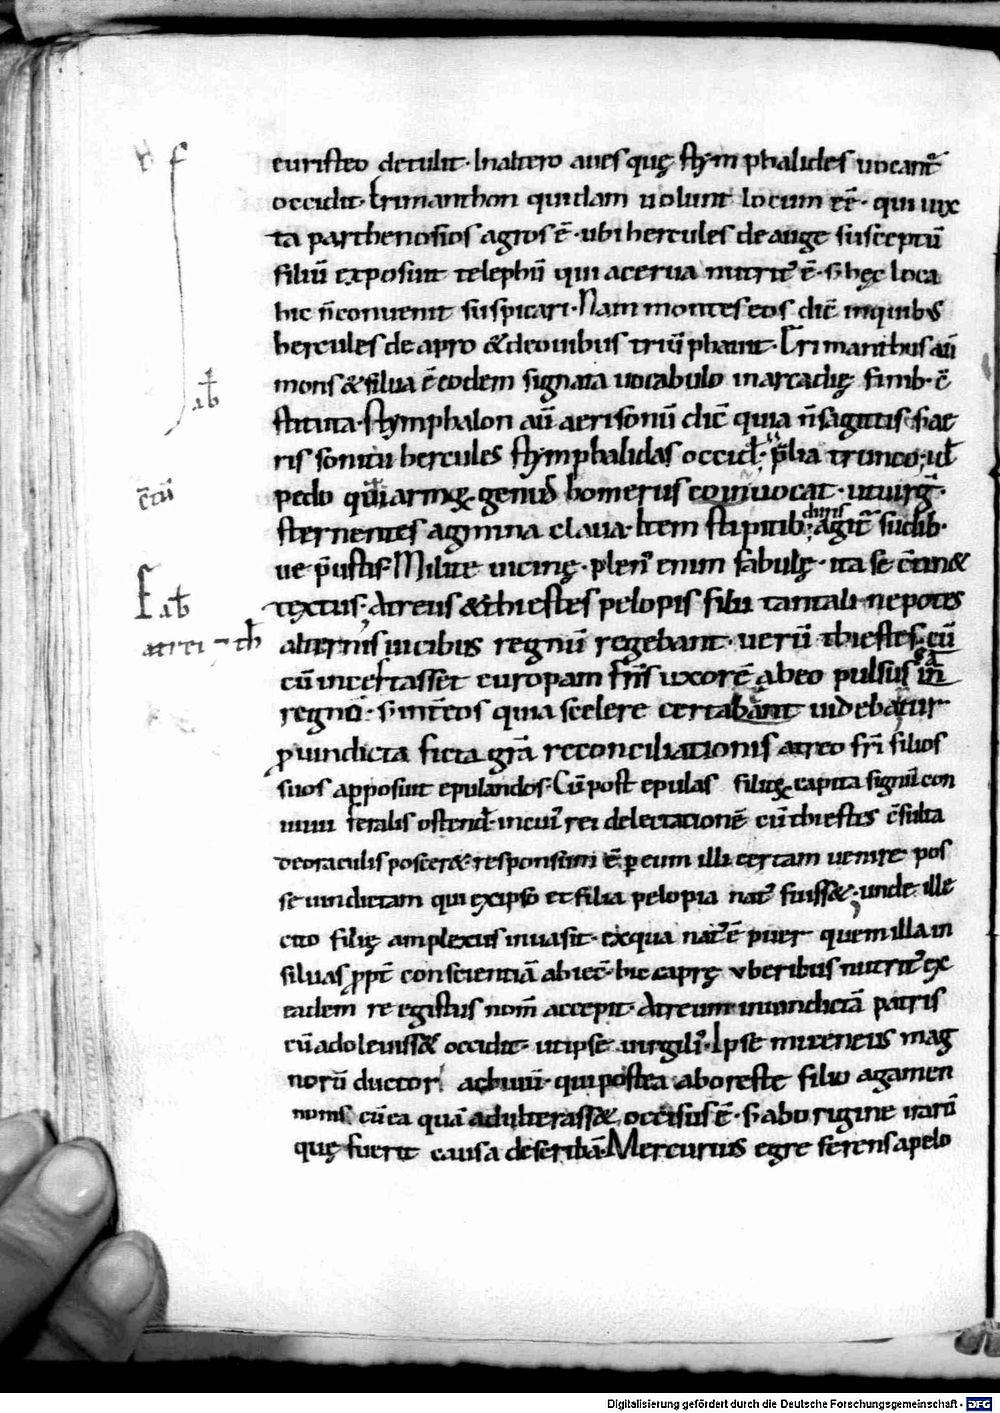 euristeo detulit · In altero aues quę stymphalides uocant̄
occidit · Erimanthon quidam uolunt locum eē · qui iux
ta parthenosios agros ē · ubi hercules de auge susceptū
filiū exposuit telephū qui a cerua nutrit' ē · s; hęc loca
hic n̄ conuenit suspicari · Nam montes eos dic̄ in quib;
hercules de apro & de ouibus triūphauit · Erimanthus aū
mons & silua ē eodem signata uocabulo in arcadię finib · c̄
stituta · stymphalon aū aerisonū dic̄ quia n̄ sagittis s; ae
ris sonitu hercules stymphalidas occid̄ · p̄lia trunco ; ul̄
pedo armoꝝ · genus homerus uocat · ut uirḡ ·
sternentes agmina claua · Item stipitib ; duris agit̄ sudib ·
ue p̄ustis · Milite uicinę · plen' enim fabulę · ita se c̄tin&
textus ; Atreus & thiestes pelopis filii tantali nepotes
alternis uicibus regnū regebant · uerū thiestes cū
cū incestasset europam fr̄is uxorē ab eo pulsus
regno · s; int̄ eos quia scelere certabant uidebatur
ꝓ uindicta ficta gr̄a reconciliationis atreo fr̄i filios
suos apposuit epulandos · Cū post epulas filioꝝ capita signū con
uiuii feralis ostend̄ · in cui' rei delectationē cū thiestes c̄sulta
t oraculis poscer& responsum ē ꝑ eum illi certam uenire pos
se uindictam qui ex ipso et filia pelopia nat' fuiss& ; unde ille
cito filię amplexus inuasit · ex qua nat' ē puer quem illa in
siluas ꝓpt̄ conscientiā abiec̄ · hic caprę uberibus nutrit' ex
eadem re egistus nom̄ accepit · Atreum in uindictā patris
cū adoleuiss& occidit · ut ipse uirgili' · Ipse mireneus mag
norū ductor achiuū · qui postea ab oreste filio agamen
nonis cū ea quā adulterass& occisus ē · s; ab origine irarū
quę fuerit causa describā · Mercurius egre ferens a pelo
ab
c̄tū
ab
atrei ⁊ th